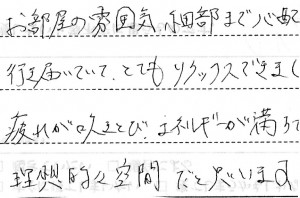 お部屋の雰囲気、細部まで心配
行き届いていて、とてもリラックスできまし
疲れが吹きとび、エネルギーが満ちて
理想的な空間だと思います